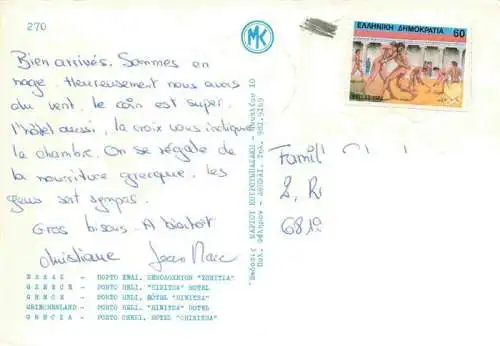 270
MK
ΕΛΛΗΝΙΚΗ ΔΗΜΟΚΡΑΤΙΑ 60
Bien arrivés. Sommes en
nage. Heureusement nous avons
du vent, le coin est super,
l'hôtel aussi, la croix vous indique
la chambre. On se régale de
la nourriture grecque, les
gens sont sympas.
Gros bisous. A bientôt
Christiane Jean Marc
Famill
2, R
681
ΕΛΛΑΣ - ΠΟΡΤΟ ΧΕΛΙ, ΞΕΝΟΔΟΧΕΙΟΝ "ΧΗΝΙΤΣΑ"
GREECE - PORTO HELI, "HINITSA" HOTEL
GRECE - PORTO HELI, HÔTEL "HINITSA"
GRIECHENLAND - PORTO HELI, "HINITSA" HOTEL
GRECIA - PORTO CHELI, HOTEL "CHINITSA"